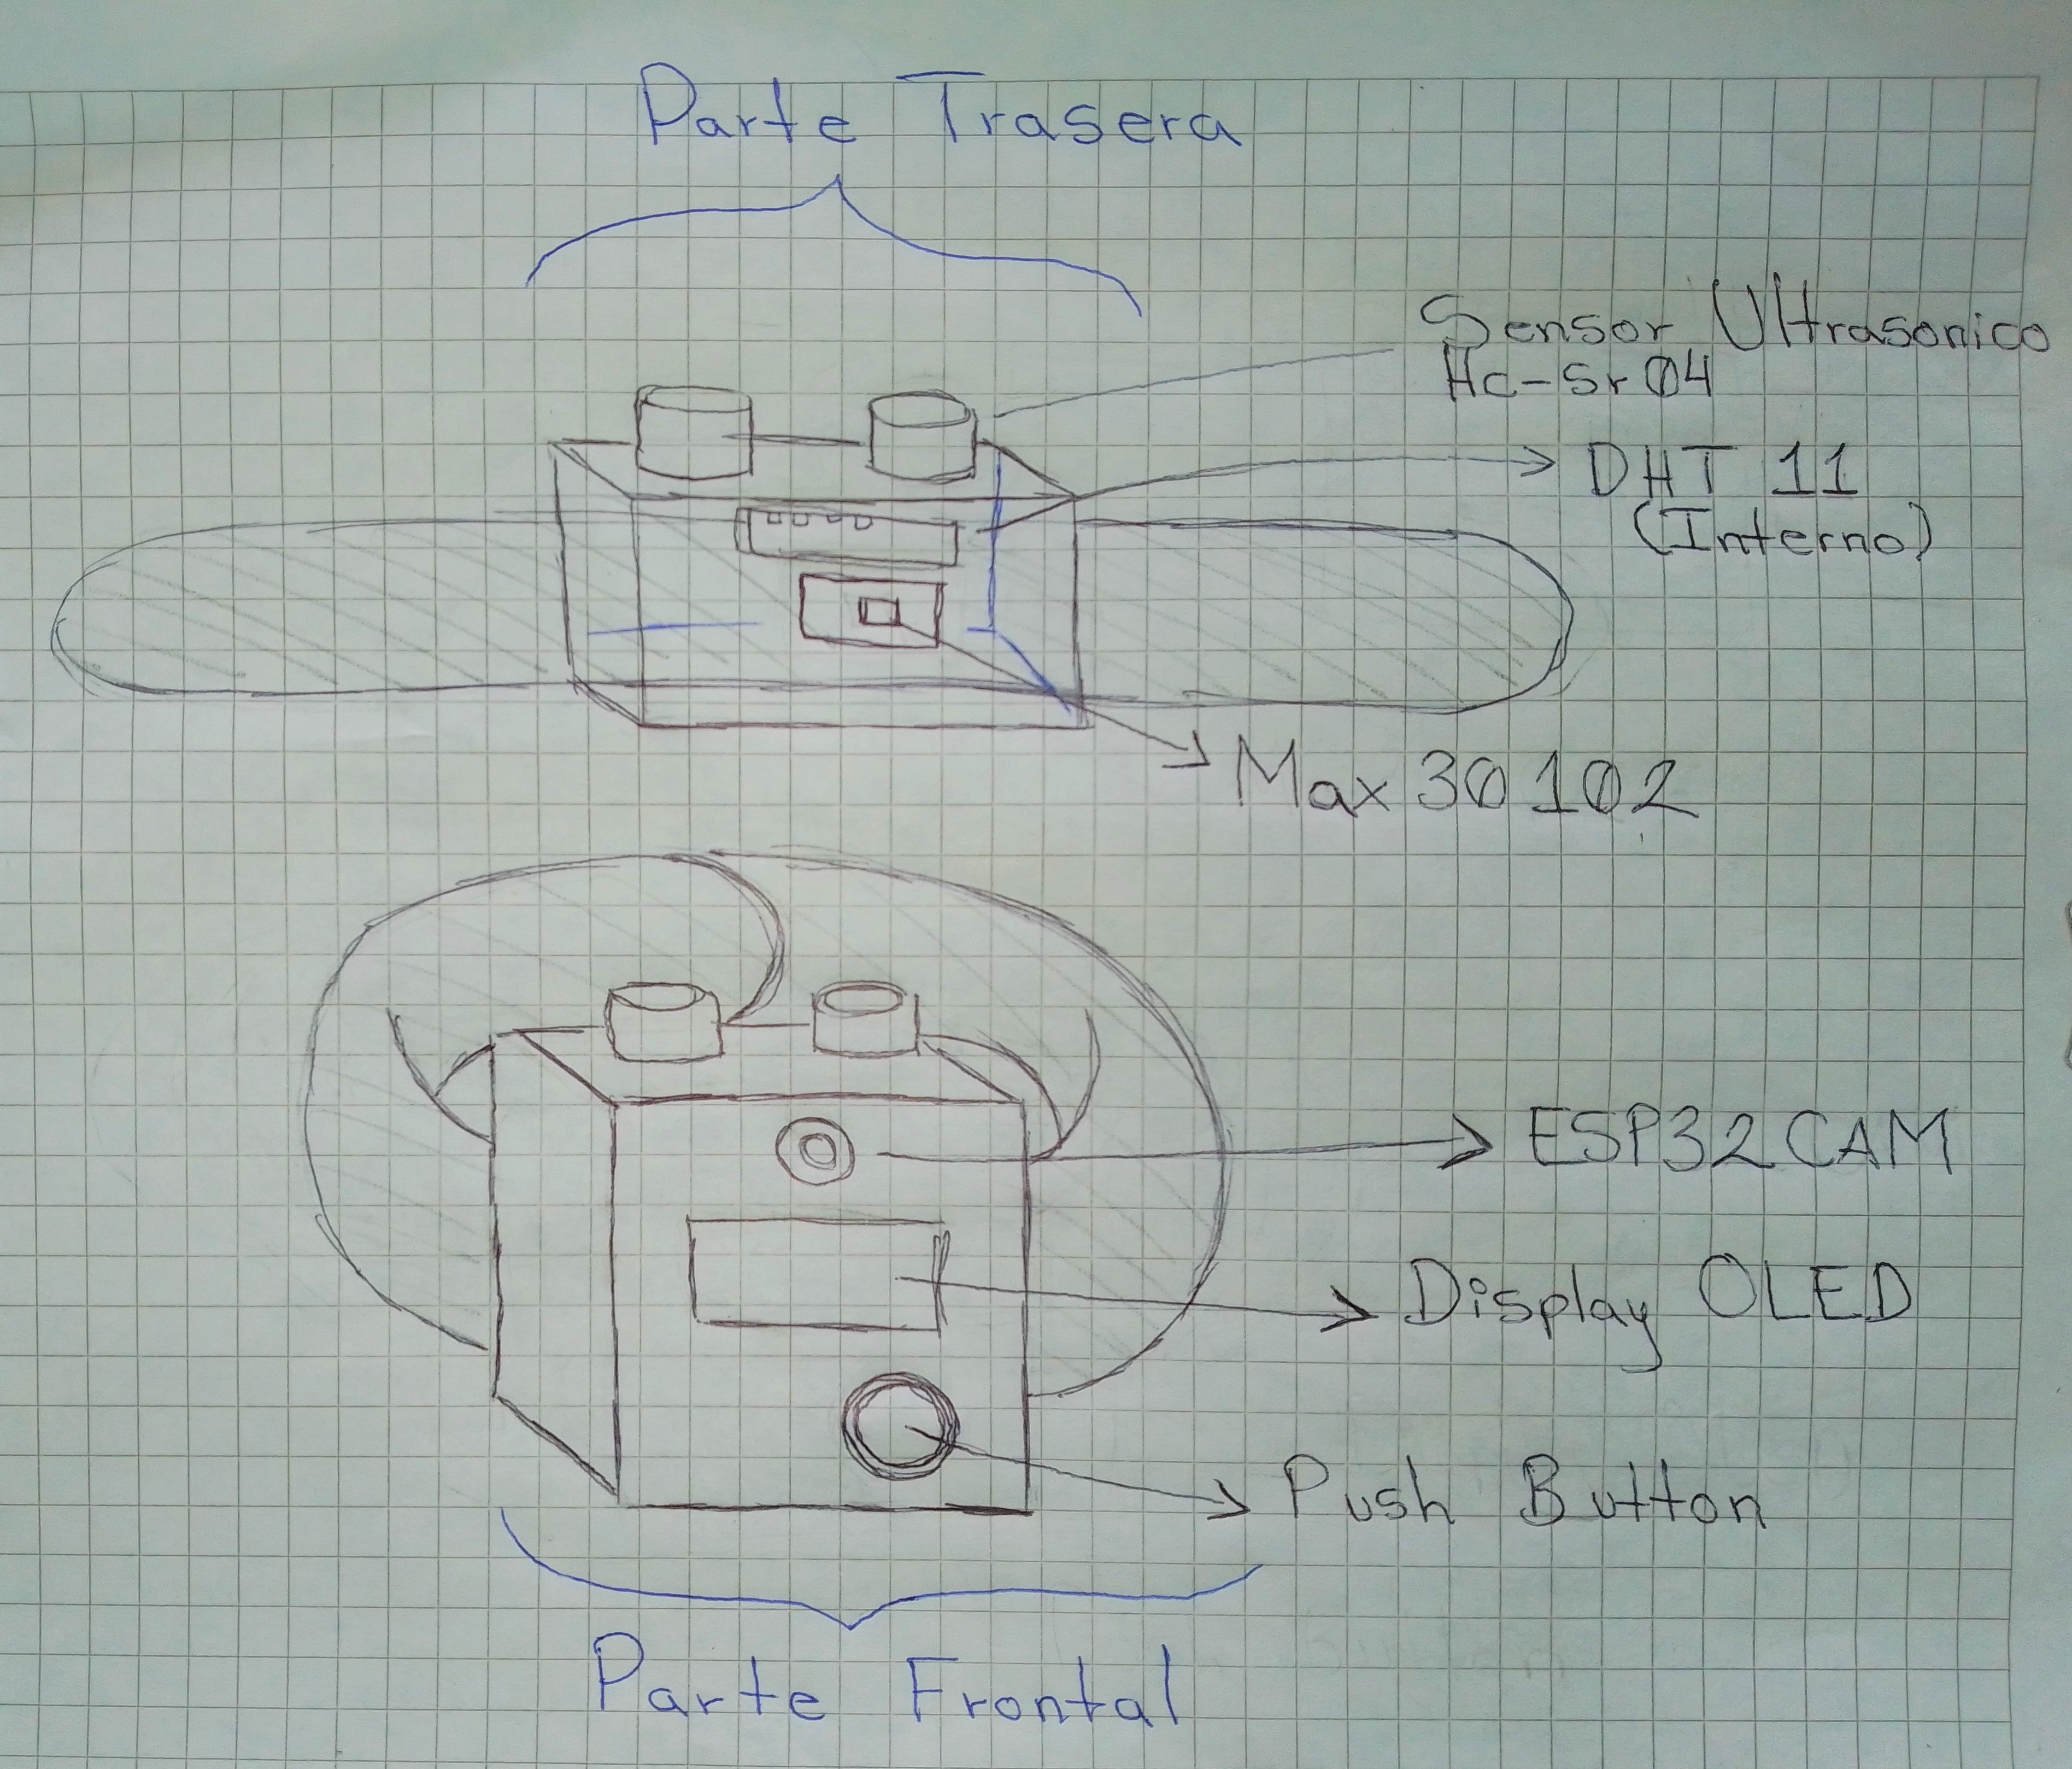 Parte Trasera
Sensor Ultrasonico
Hc-Sr04
DHT 11
(Interno)
Max30102
ESP32CAM
Display OLED
Push Button
Parte Frontal